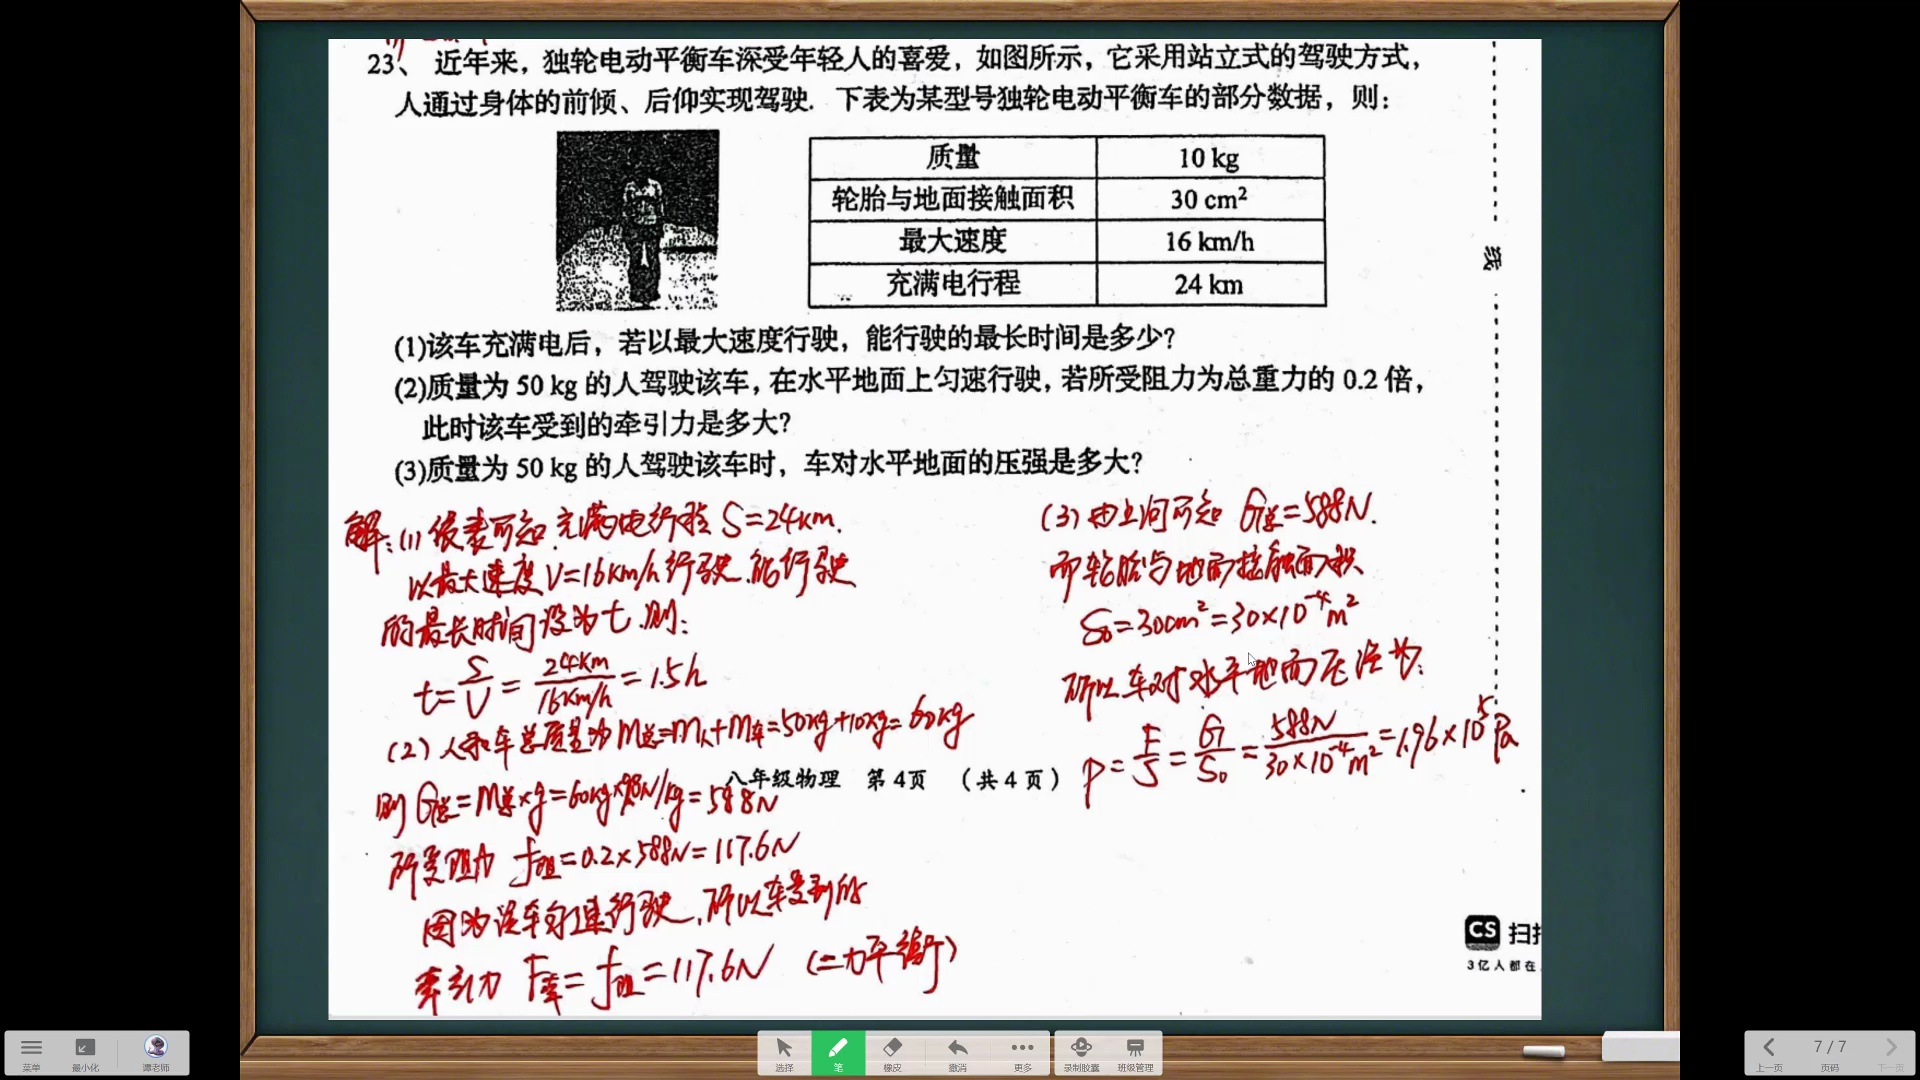 23、 近年来，独轮电动平衡车深受年轻人的喜爱，如图所示，它采用站立式的驾驶方式，
人通过身体的前倾、后仰实现驾驶. 下表为某型号独轮电动平衡车的部分数据，则：
质量 10 kg
轮胎与地面接触面积 30 cm²
最大速度 16 km/h
充满电行程 24 km
线
(1)该车充满电后，若以最大速度行驶，能行驶的最长时间是多少？
(2)质量为 50 kg 的人驾驶该车，在水平地面上匀速行驶，若所受阻力为总重力的 0.2 倍，
此时该车受到的牵引力是多大？
(3)质量为 50 kg 的人驾驶该车时，车对水平地面的压强是多大？
解：(1) 依表可知 充满电行程 S=24km.
以最大速度 V=16km/h行驶.能行驶
的最长时间设为t.则：
t=S/V=24km/16km/h=1.5h
(2) 人和车总质量为 M总=m人+m车=50kg+10kg=60kg
则 G总=M总×g=60kg×9.8N/kg=588N
所受阻力 f阻=0.2×588N=117.6N
因为该车匀速行驶.所以车受到的
牵引力 F牵=f阻=117.6N (二力平衡)
(3) 由上问可知 G总=588N.
而轮胎与地面接触面积
S₀=30cm²=30×10⁻⁴m²
所以车对水平地面压强为：
P=F/S=G/S₀=588N/30×10⁻⁴m²=1.96×10⁵Pa
八年级物理 第4页 （共4页）
CS 扫
3亿人都在
菜单 最小化 谭老师 选择 笔 橡皮 撤消 更多 录制胶囊 班级管理 上一页 7/7 页码 下一页